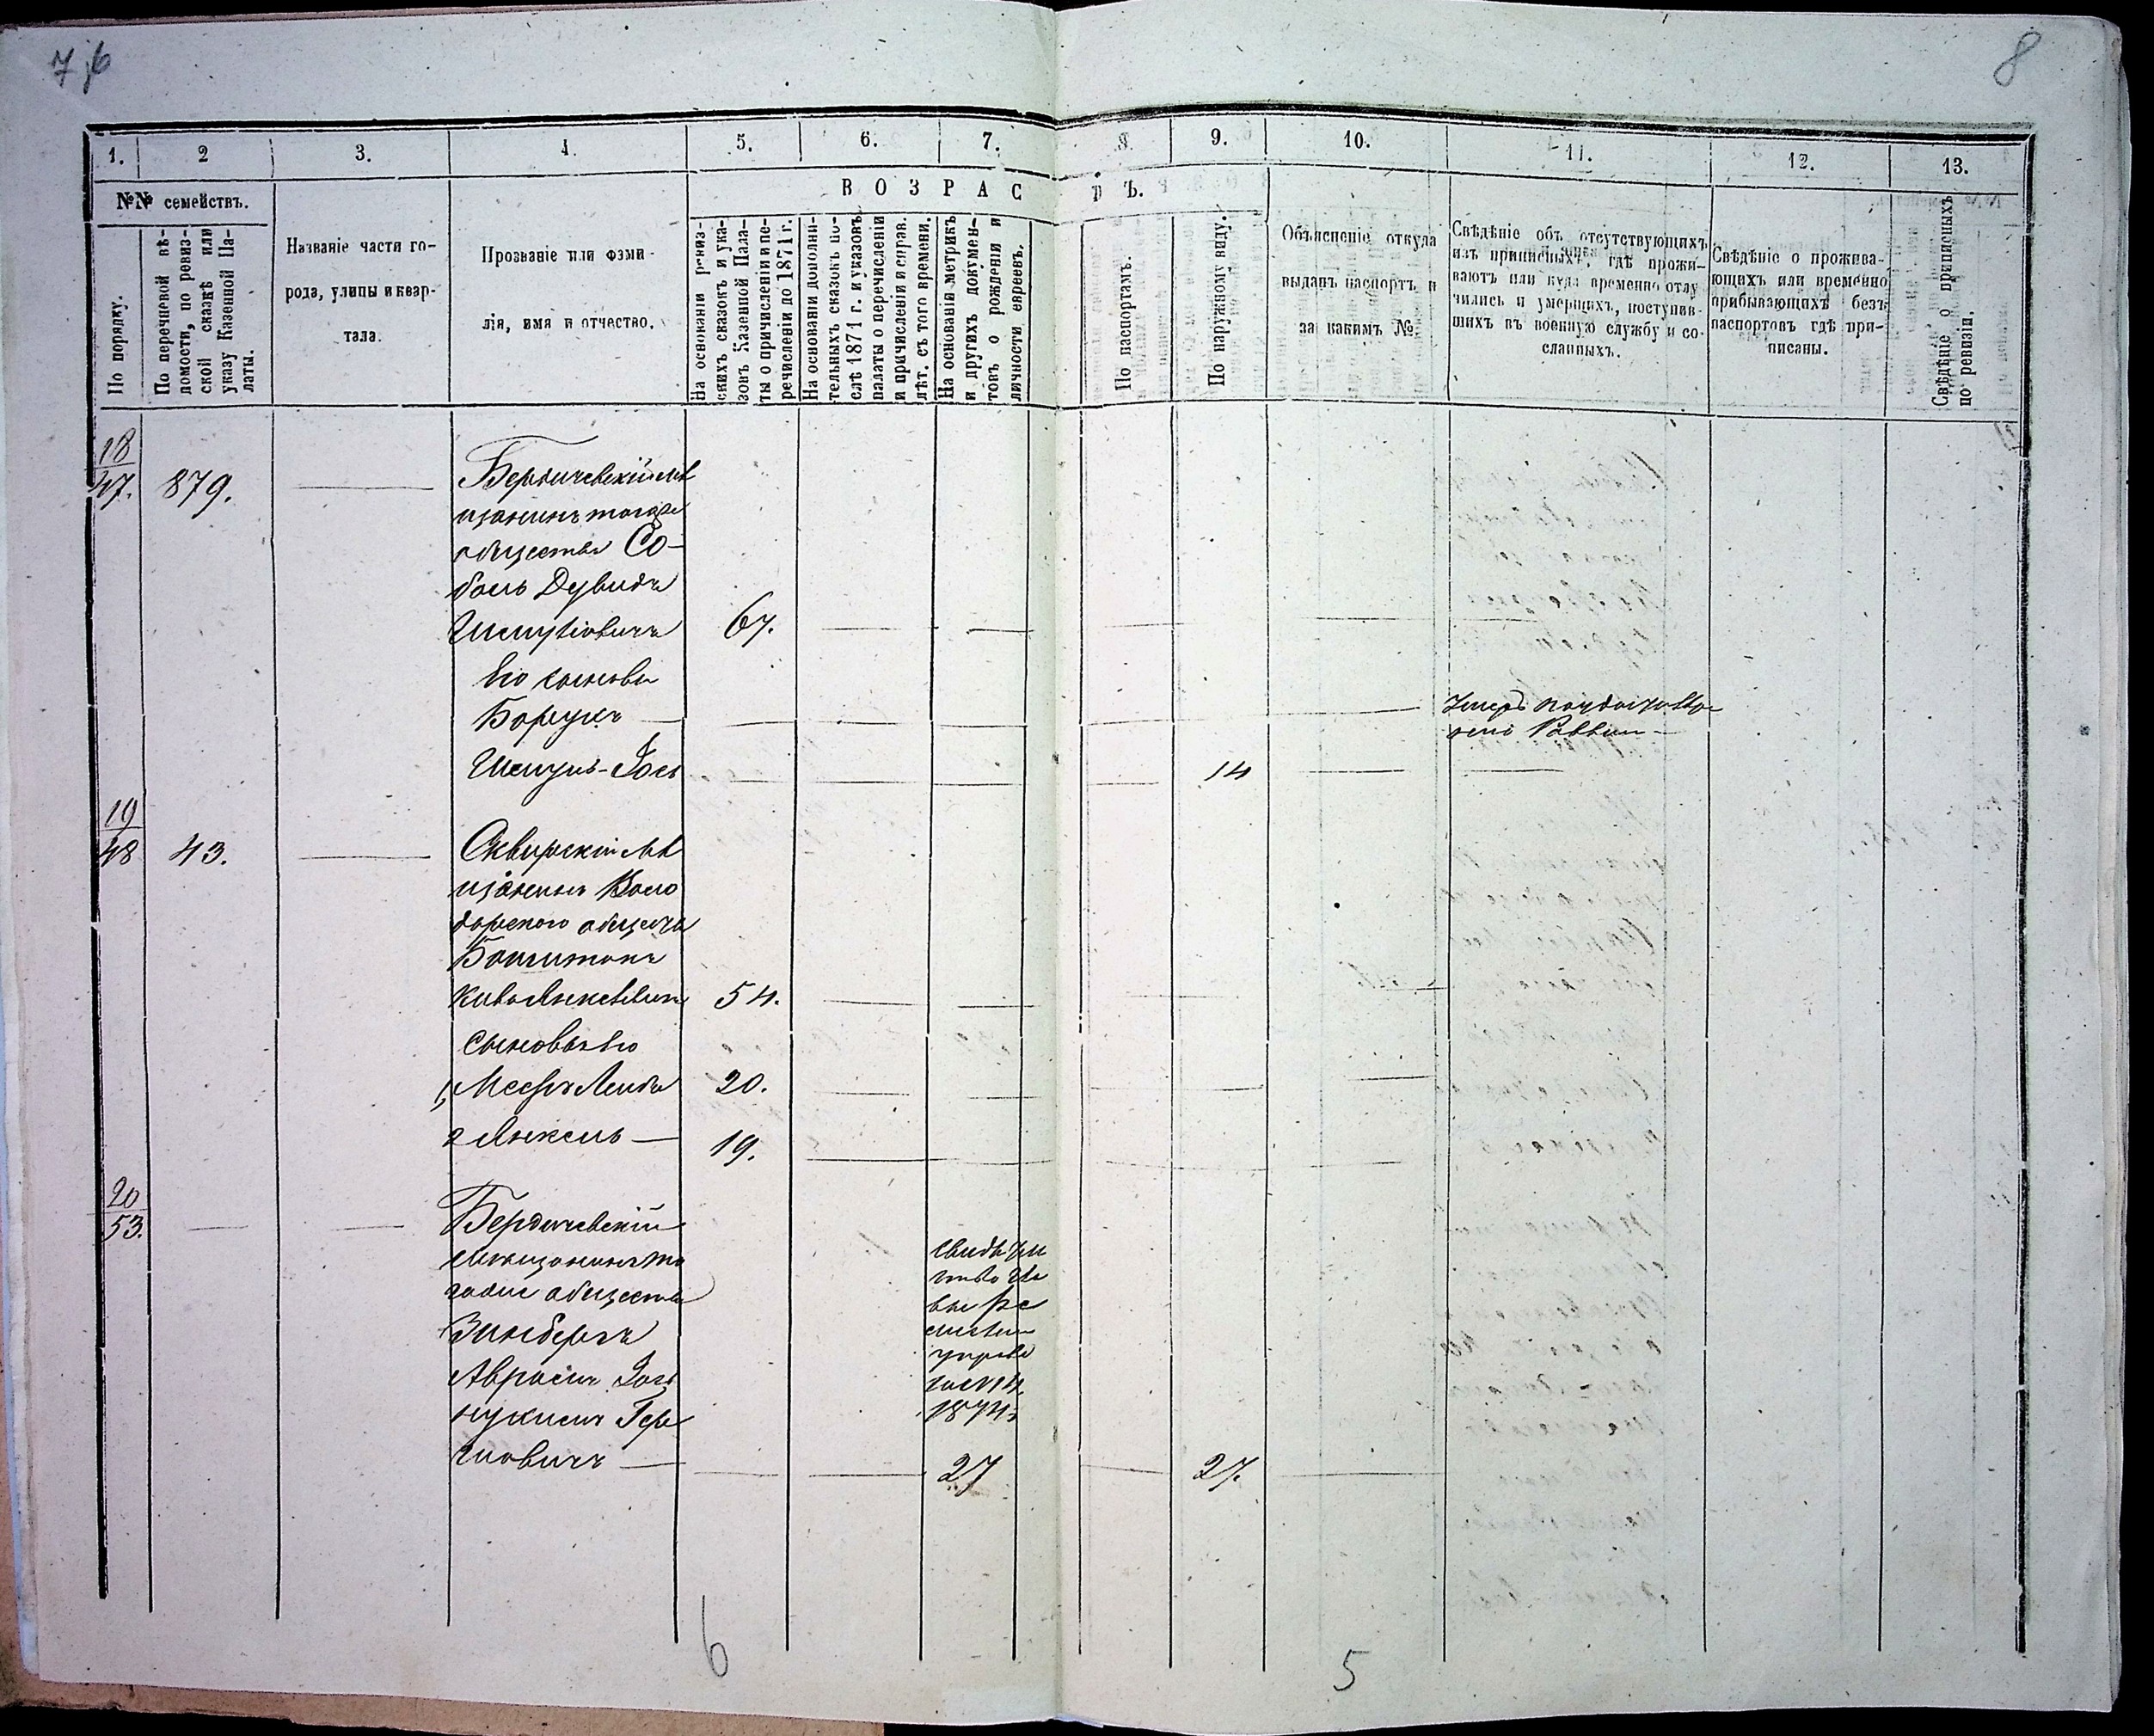 8
1.
2
3.
4.
5.
6.
7.
8.
9.
10.
11.
12.
13.
№№ семействъ.
По порядку.
По перечневой вѣ-
домости, по ревиз-
ской сказкѣ или
указу Казенной Па-
латы.
Названіе части го-
рода, улицы и квар-
тала.
Прозваніе или фами-
лія, имя и отчество.
ВОЗРАСТЪ.
На основаніи ревиз-
скихъ сказокъ и ука-
зовъ Казенной Пала-
ты о причисленіи и пе-
речисленіи до 1871 г.
На основаніи дополни-
тельныхъ сказокъ по-
слѣ 1871 г. и указовъ
палаты о перечисленіи
и причисленіи и справ.
лѣт. съ того времени.
На основаніи метрикъ
и другихъ докумен-
товъ о рожденіи и
личности евреевъ.
По паспортамъ.
По наружному виду.
Объясненіе откуда
выданъ паспортъ и
за какимъ №.
Свѣдѣніе объ отсутствующихъ
изъ приписныхъ, гдѣ прожи-
ваютъ или куда временно отлу
чились и умершихъ, поступив-
шихъ въ военную службу и со-
сланныхъ.
Свѣдѣніе о прожива-
ющихъ или временно
прибывающихъ безъ
паспортовъ гдѣ при-
писаны.
Свѣдѣніе о приписныхъ
по ревизіи.
18
47.
879.
Бердичевскій мѣ
щанинъ тогоже
общества Со-
боль Дувидъ
Шмулiовичъ
67.
Его сыновья
Борухъ
Умеръ
Раввин
Шмуль-Іось
14
19
48
43.
Сквирскій мѣ
щанинъ Воло
дарского общества
Киво Янкелевичъ
54.
Сыновья его
1, Мееръ Лейба
20.
2 Янкель
19.
20
53.
Бердичевскій
мѣщанинъ то
гоже общества
Зинбергъ
Аврамъ Іось
Гер
шовичъ
Свидѣтель
ство
управы
1874
27
27.
6
5